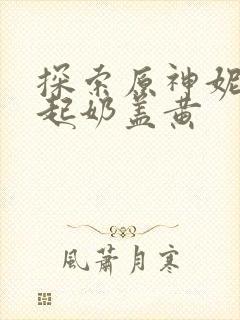 探索原神妮
起奶盖黄
風蕭月寒